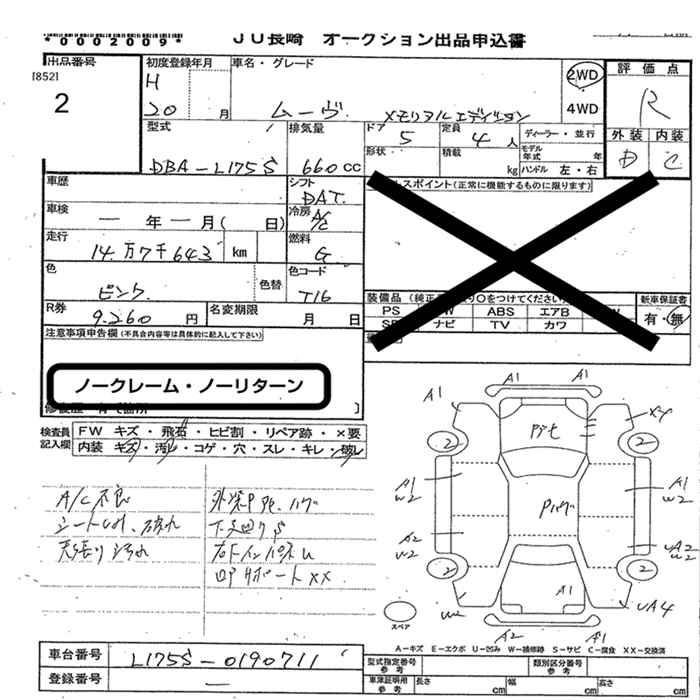 *0002009*
JU長崎 オークション出品申込書
出品番号
[852]
2
初度登録年月
H
20 月
車名・グレード
ムーヴ メモリアルエディション
2WD
4WD
評価点
R
外装 内装
D C
型式
DBA-L175S
排気量
660 cc
ドア
5
定員
4 人
ディーラー・並行
形状
積載
kg
モデル年式 年
ハンドル 左・右
車歴
シフト
DAT
スポイント(正常に機能するものに限ります)
車検
ー 年 ー 月( 日)
冷房
A/C
走行
14万7千643 km
燃料
G
色
ピンク
色替
色コード
T16
R券
9,260 円
名変期限
月 日
装備品
PS
ABS エアB
ナビ TV カワ
新車保証書
有・無
注意事項申告欄(不具合内容等は具体的に記入して下さい)
ノークレーム・ノーリターン
検査員記入欄
FW キズ・飛石・ヒビ割・リペア跡・×要
内装 キズ・汚レ・コゲ・穴・スレ・キレ・破レ
A/C不良
天張り汚れ
下廻りS
コアサポートXX
A1 A1
A1
X4
2 2
A1
W2
A1
W2
A2
W2
UA2
W2
2 2
A1
W2
UA4
A2 A1
スペア
A-キズ E-エクボ U-凹み W-補修跡 S-サビ C-腐食 XX-交換済
車台番号
L175S-0190711
登録番号
ー
型式指定番号
参考
類別区分番号
参考
車庫証明用
参考
長さ cm
幅 cm
高さ cm